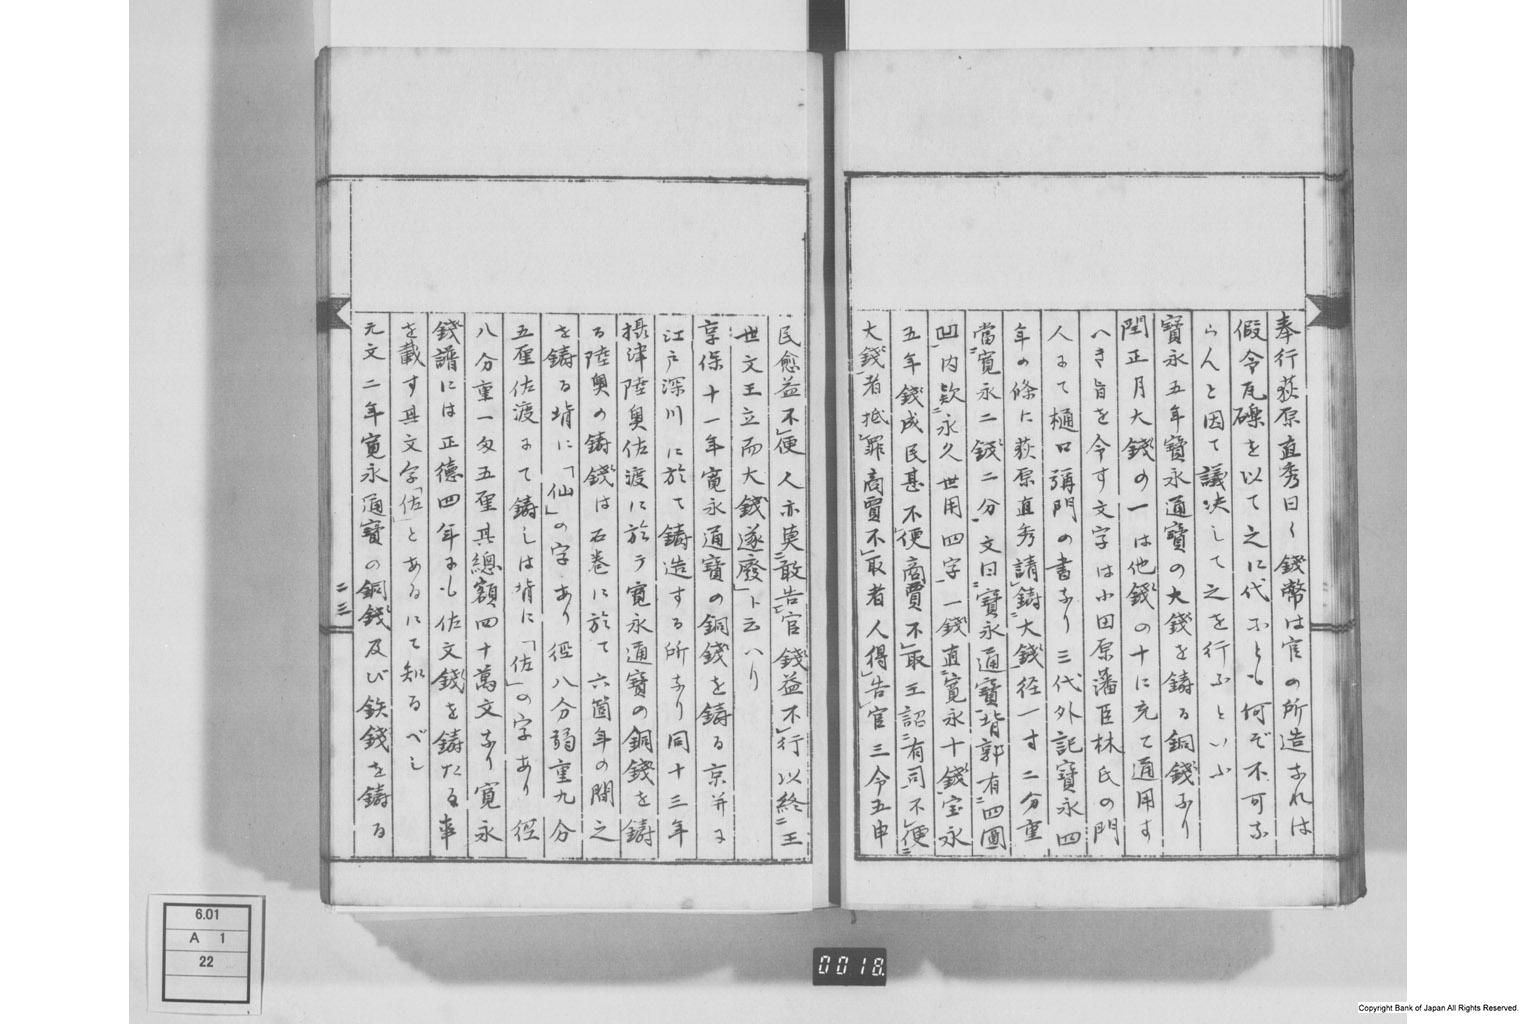 奉行荻原直秀曰く錢幣は官の所造なれは
假令瓦礫を以て之に代ふとも何ぞ不可な
らんと因て議决して之を行ふといふ
寶永五年寶永通寶の大錢を鋳る銅錢なり
閏正月大錢の一は他錢の十に充て通用す
へき旨を令す文字は小田原藩臣林氏の門
人にて樋口彌門の書なり三代外記寶永四
年の條に荻原直秀請鋳大錢径一寸二分重
當寛永二錢二分文曰寶永通寶背郭有四圓
凹内欵永久世用四字一錢直寛永十錢宝永
五年錢成民甚不便商賈不取王詔有司不便
大錢者抵罪商賈不取者人得告官三令五申
民愈益不便人亦莫敢告官錢益不行以終王
世文王立而大錢遂廢ト云へり
享保十一年寛永通寶の銅錢を鋳る京并に
江戸深川に於て鋳造する所なり同十三年
摂津陸奥佐渡に於テ寛永通寶の銅錢を鋳
る陸奥の鋳錢は石巻に於て六箇年の間之
を鋳る背に「仙」の字あり径八分弱重九分
五厘佐渡にて鋳しは背に「佐」の字あり径
八分重一匁五厘其總額四十萬文なり寛永
錢譜には正徳四年にも佐文錢を鋳たる事
を載す其文字「佐」とあるにて知るべし
元文二年寛永通寶の銅錢及び鉄錢を鋳る
二三
6.01
A 1
22
0018.
Copyright Bank of Japan All Rights Reserved.